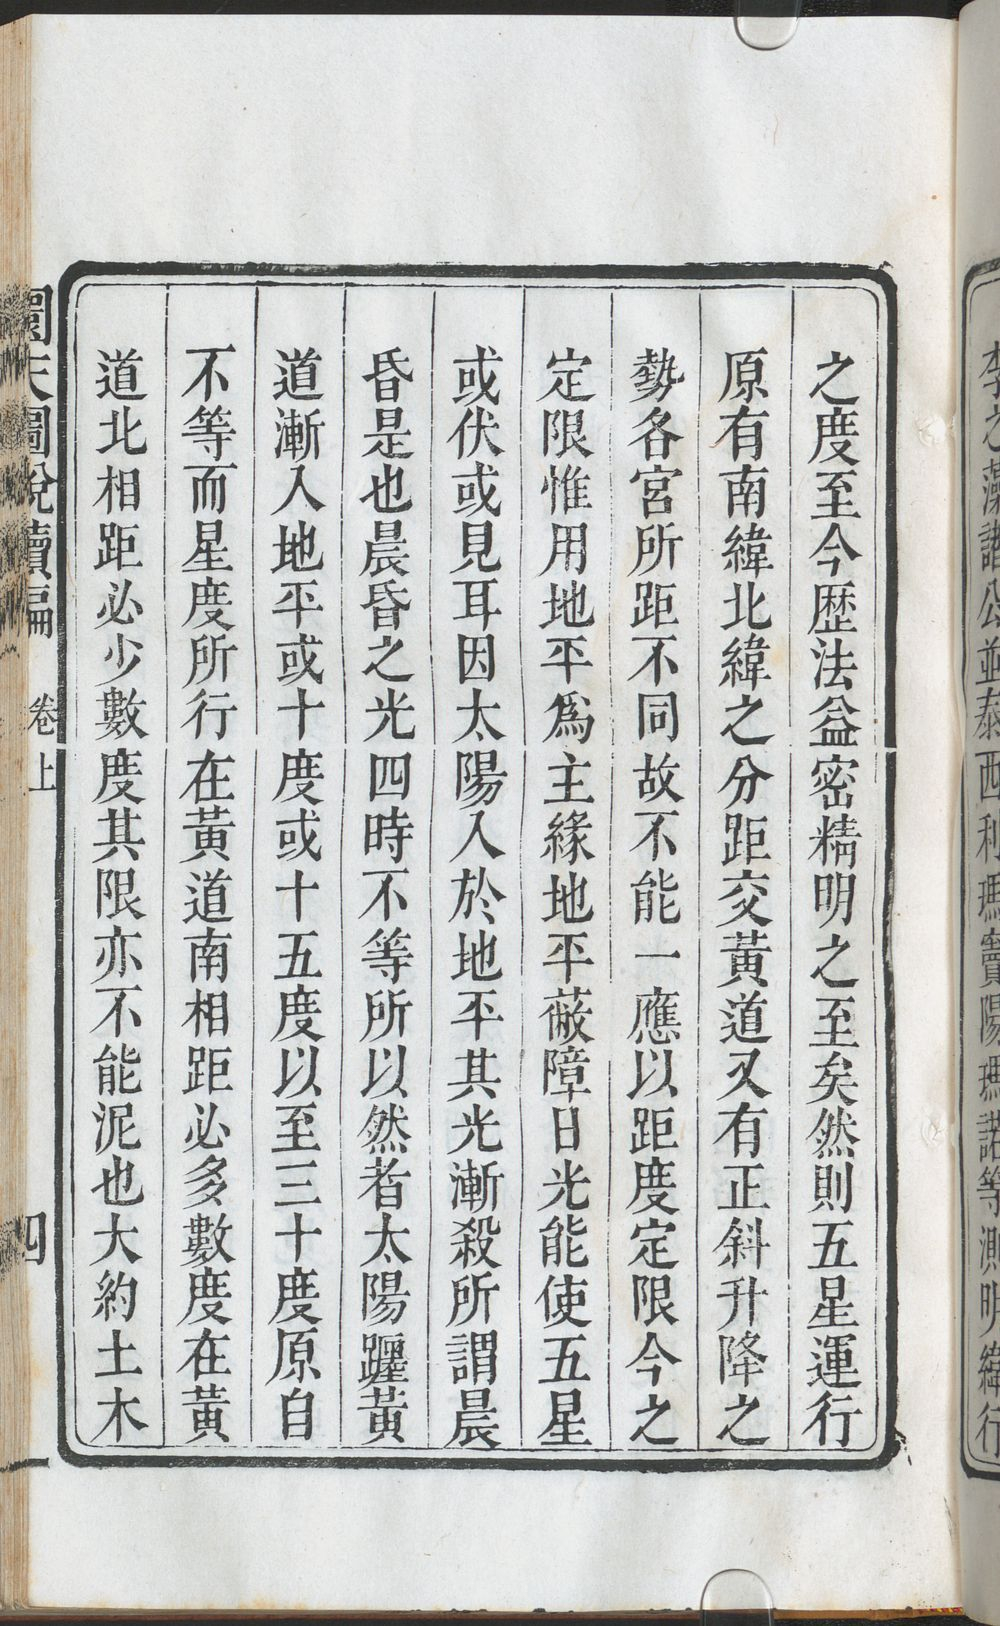 李之藻諸公並泰西利瑪竇陽瑪諾等測明緯行
之度至今歴法益密精明之至矣然則五星運行
原有南緯北緯之分距交黃道又有正斜升降之
勢各宮所距不同故不能一應以距度定限今之
定限惟用地平爲主緣地平蔽障日光能使五星
或伏或見耳因太陽入於地平其光漸殺所謂晨
昏是也晨昏之光四時不等所以然者太陽躔黃
道漸入地平或十度或十五度以至三十度原自
不等而星度所行在黃道南相距必多數度在黃
道北相距必少數度其限亦不能泥也大約土木
圜天圖說續編 卷上 四